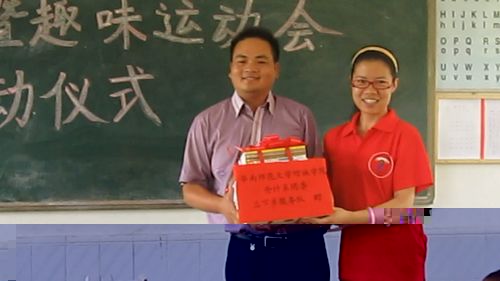 暨趣味运动会
动仪式
华南师范大学增城学院
会计系团委
三下乡服务队 赠
H I J K L
h i j k l
O P Q R
o p q r
U V W X
u v w x